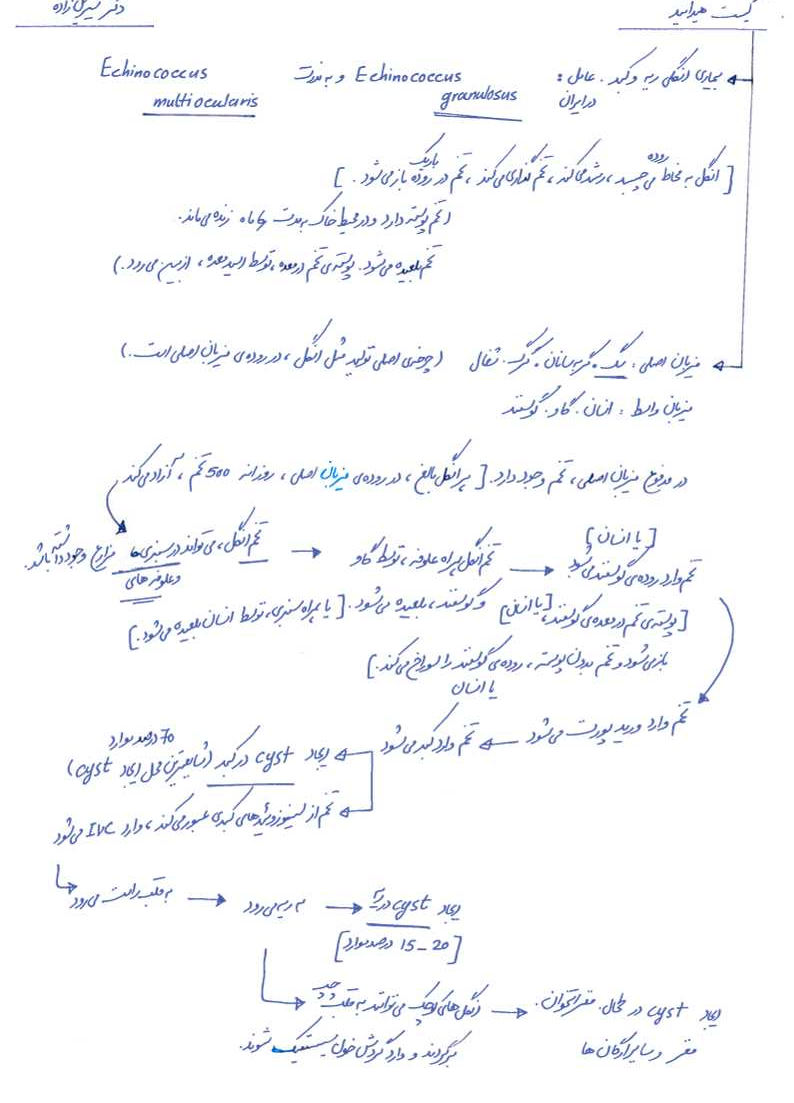 کیست هیداتید
دکتر شیرعلی‌زاده
بیماری انگلی ریه و کبد. عامل: در ایران Echinococcus granulosus و به ندرت Echinococcus multiocularis
[انگل به مخاط روده می چسبد، رشد می کند، تخم گذاری می کند، تخم در روده باریک باز می شود.]
(تخم پوسته دارد و در محیط خاک به مدت ماه زنده می ماند.
تخم بلعیده می شود. پوسته ی تخم در معده، توسط اسید معده، از بین می رود.)
میزبان اصلی: سگ. گربه سانان. گرگ. شغال (چرخه ی اصلی تولید مثل انگل، در روده ی میزبان اصلی است.)
میزبان واسط: انسان. گاو. گوسفند
در مدفوع میزبان اصلی، تخم وجود دارد. [هر انگل بالغ، در روده ی میزبان اصلی، روزانه 500 تخم، آزاد می کند
تخم انگل، می تواند در سبزی ها و علوفه های مزارع وجود داشته باشد.
تخم انگل همراه علوفه، توسط گاو و گوسفند، بلعیده می شود. [یا همراه سبزی، توسط انسان بلعیده می شود.]
تخم وارد روده ی گوسفند [یا انسان] می شود
[پوسته ی تخم در معده ی گوسفند، [یا انسان]
باز می شود و تخم بدون پوسته، روده ی گوسفند یا انسان را سوراخ می کند.]
تخم وارد ورید پورت می شود
تخم وارد کبد می شود
ایجاد cyst در کبد (شایعترین محل ایجاد cyst) 70 درصد موارد
تخم از سینوزوئیدهای کبدی عبور می کند، وارد IVC می شود
به قلب راست می رود
به ریه می رود
ایجاد cyst در ریه
[15-20 درصد موارد]
انگل های کوچک می توانند به قلب چپ
برگردند و وارد گردش خون سیستمیک شوند.
ایجاد cyst در طحال. مغز استخوان.
مغز و سایر ارگان ها